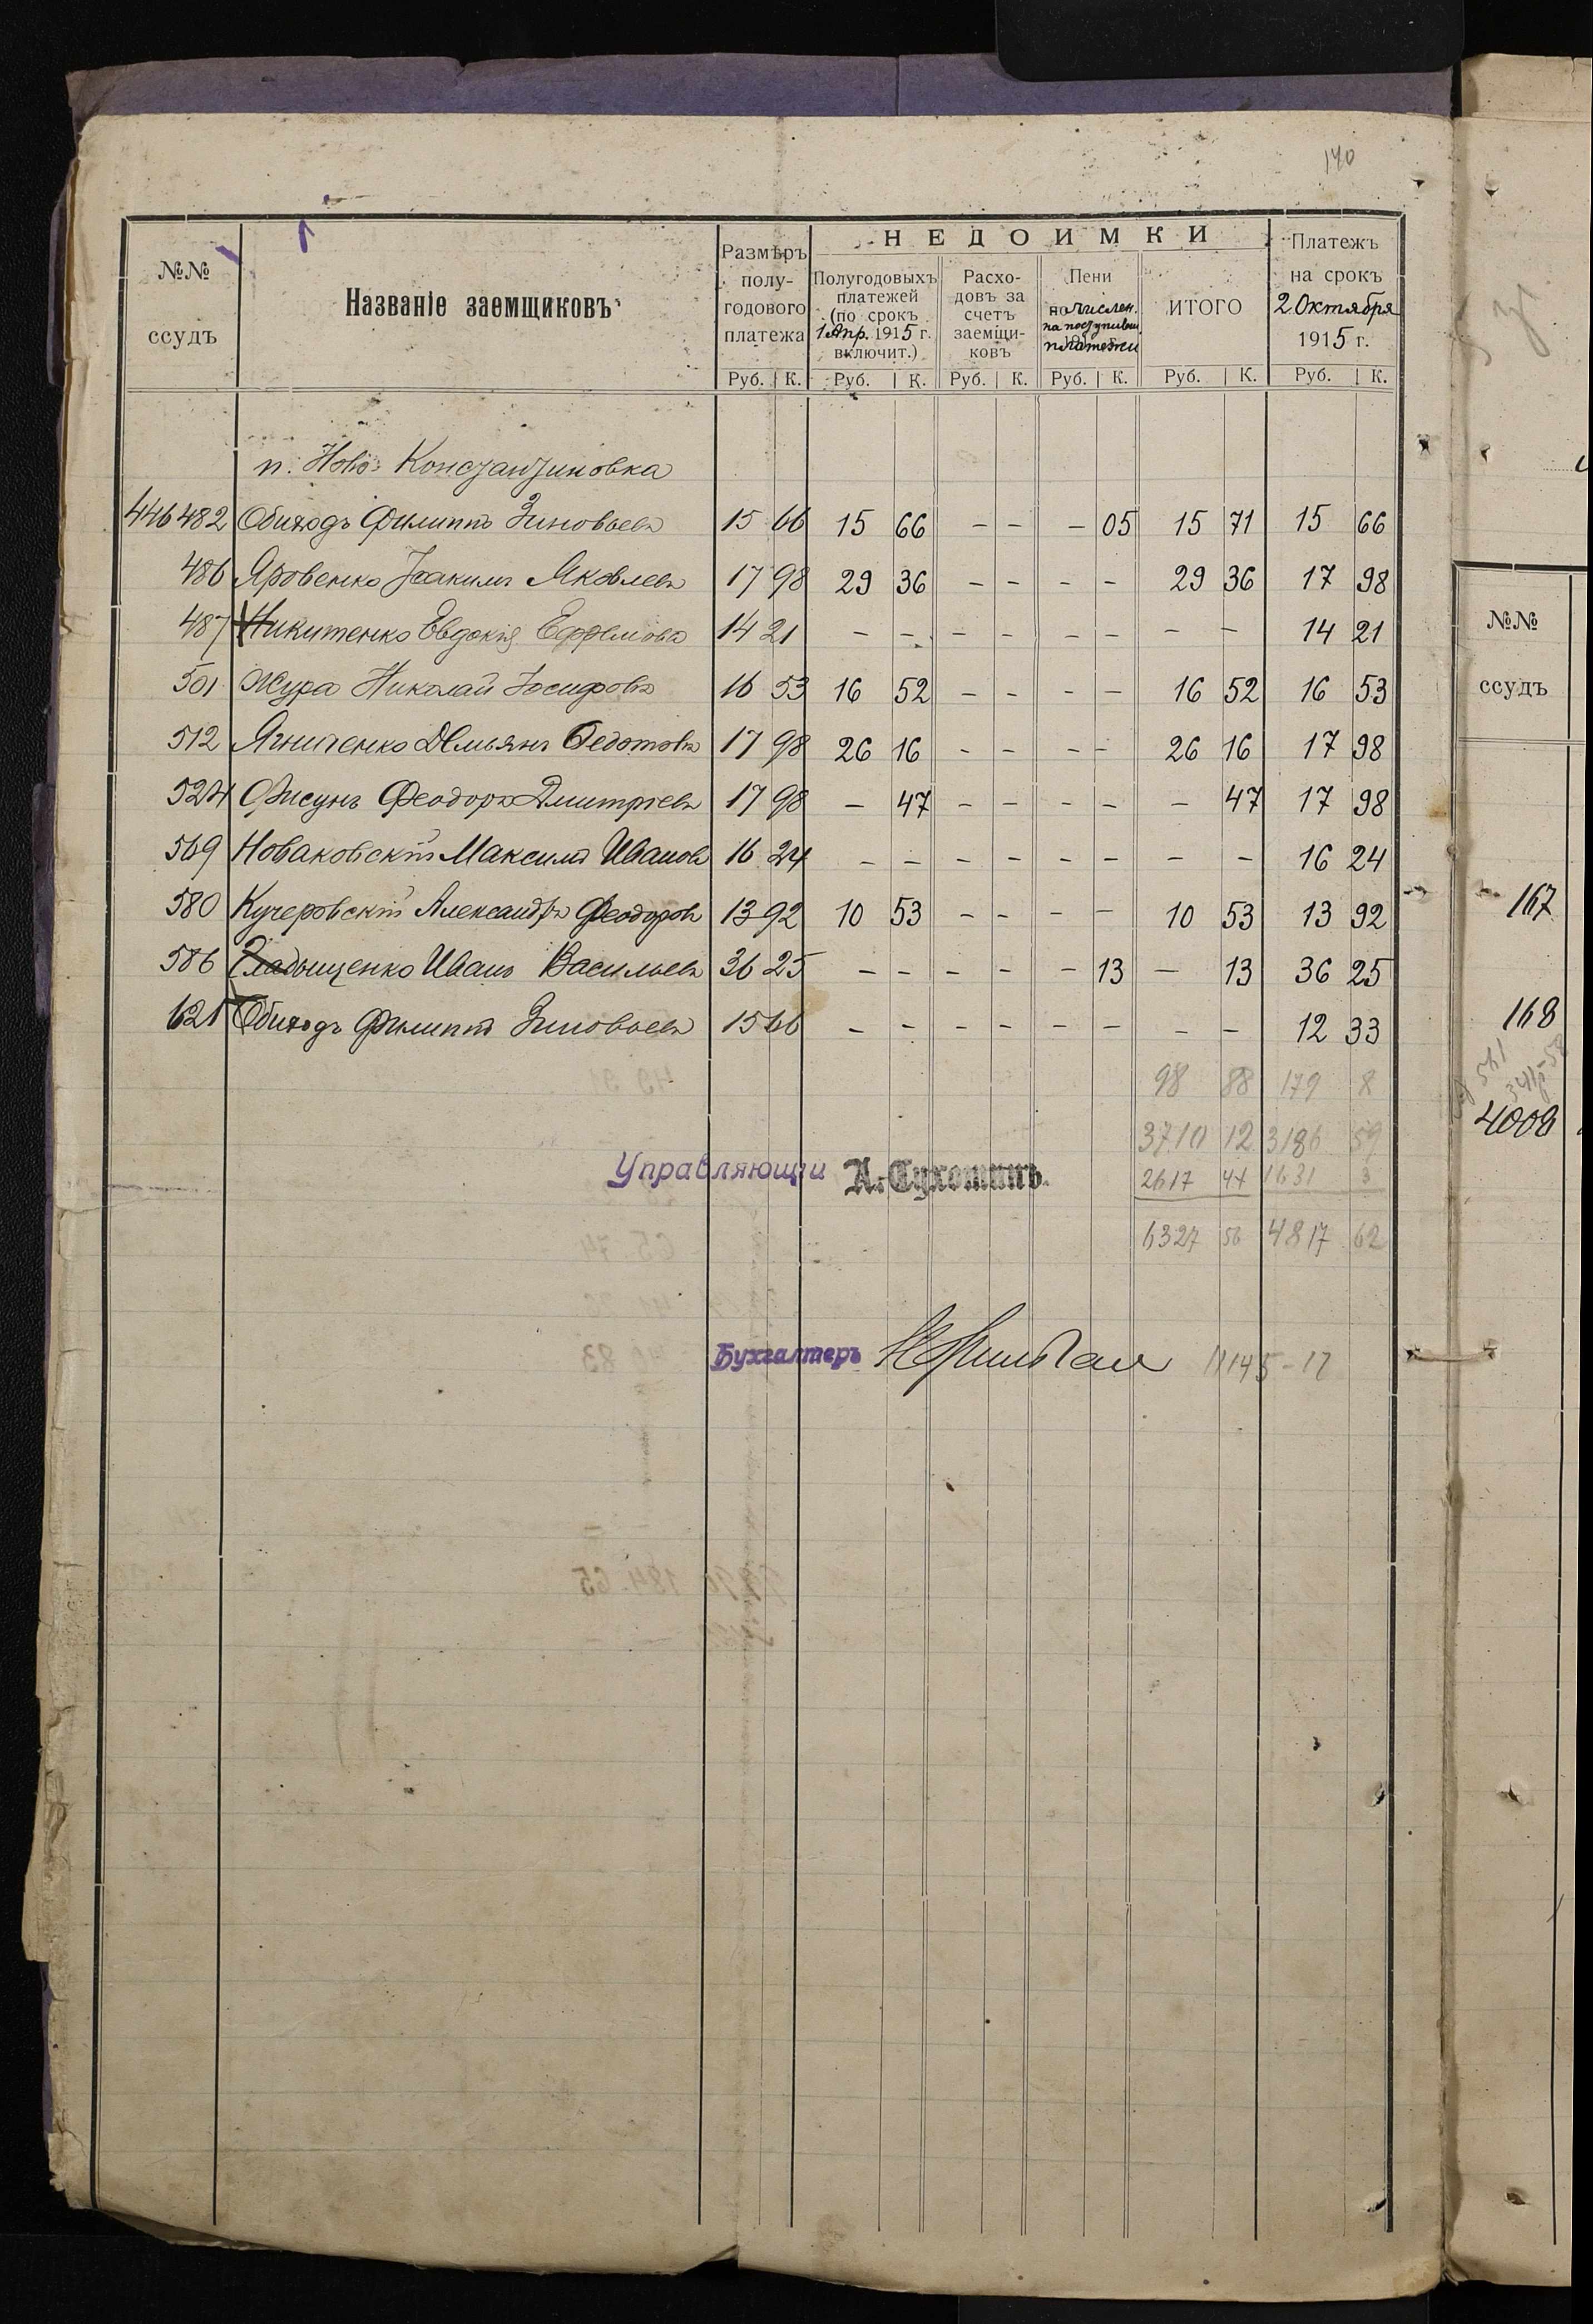 170
№№ ссудъ
Названіе заемщиковъ
Размѣръ полугодового платежа
НЕДОИМКИ
Полугодовыхъ платежей (по срокъ 1 Апр. 1915 г. включит.)
Расходовъ за счетъ заемщиковъ
Пени по числен. на поступивш. платежи
ИТОГО
Платежъ на срокъ 2 Октября 1915 г.
Руб. К. Руб. К. Руб. К. Руб. К. Руб. К. Руб. К.
п. Ново-Константиновка
446482 Обиходъ Филиппъ Зиновьевъ 15 66 15 66 – – – 05 15 71 15 66
486 Яровенко Іоакимъ Яковлевъ 17 98 29 36 – – – – 29 36 17 98
487 Никитенко Евдокія Ефремова 14 21 – – – – – – – – 14 21
501 Жура Николай Іосифовъ 16 53 16 52 – – – – 16 52 16 53
512 Ягниченко Демьянъ Федотовъ 17 98 26 16 – – – – 26 16 17 98
524 Фисунъ Феодоръ Дмитріевъ 17 98 – 47 – – – – – 47 17 98
569 Новаковскій Максимъ Ивановъ 16 24 – – – – – – – – 16 24
580 Кучеровскій Александръ Феодоровъ 13 92 10 53 – – – – 10 53 13 92
586 Гладыщенко Иванъ Васильевъ 36 25 – – – – – 13 – 13 36 25
621 Обиходъ Филиппъ Зиновьевъ 15 66 – – – – – – – – 12 33
98 88 179 8
3710 12 3186 59
Управляющій А. Сухотинъ.
2617 44 1631 3
6327 56 4817 62
Бухгалтеръ
11145-17
№№
ссудъ
167
168
4008